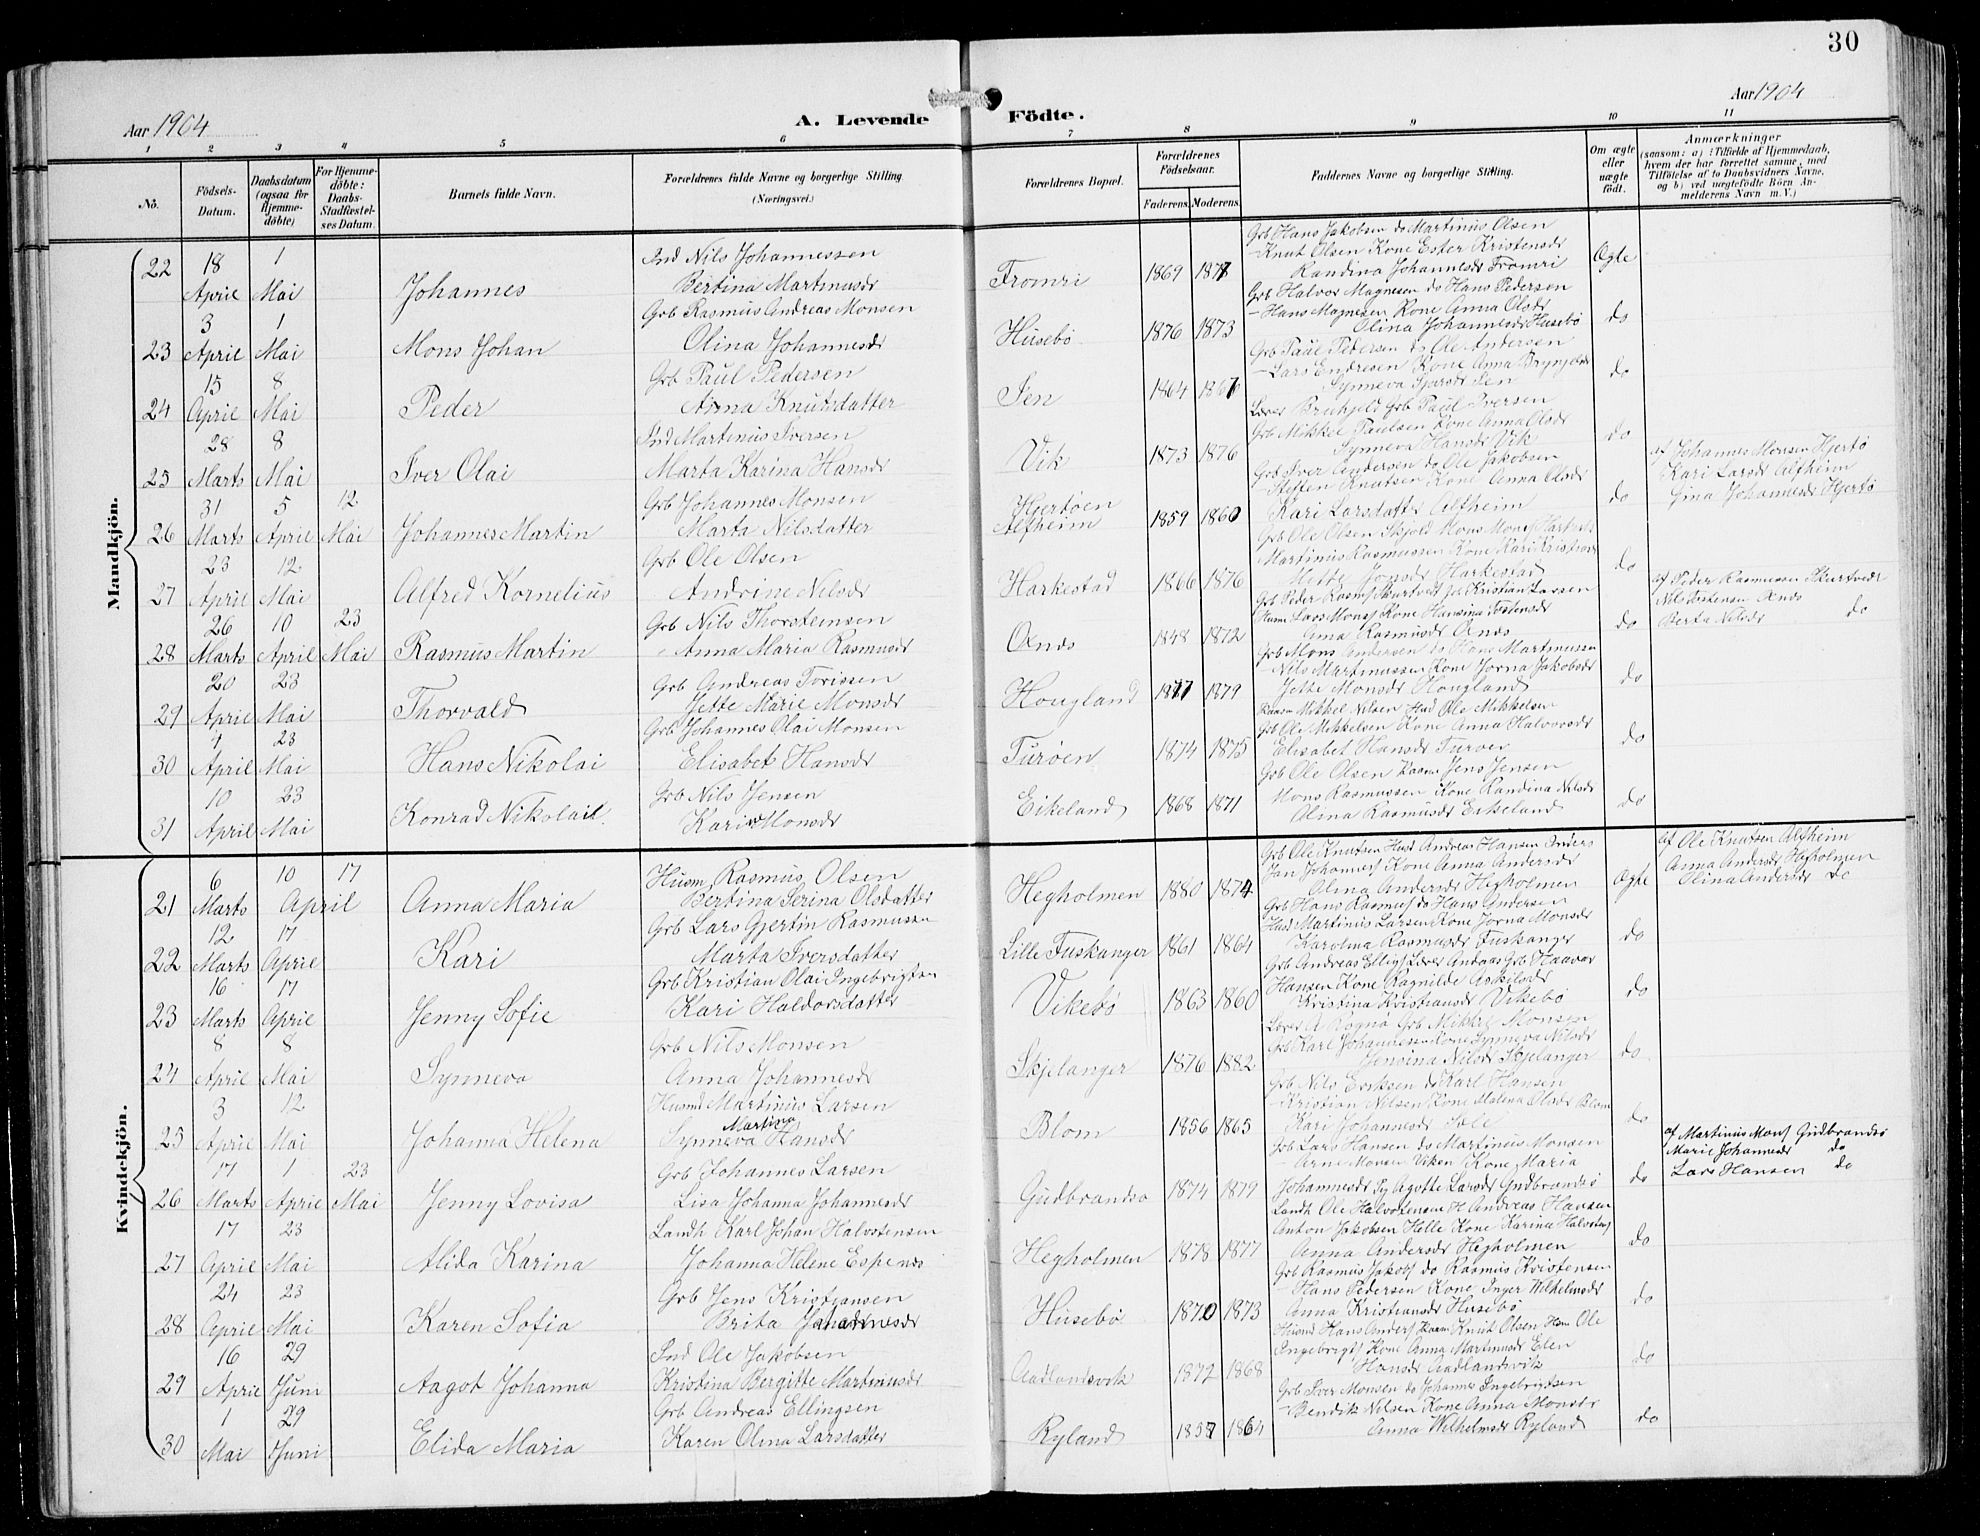 30
Aar 1904
A. Levende Födte.
Aar 1904
1 2 3 4 5 6 7 8 9 10 11
No.
Födsels-Datum.
Daabsdatum (ogsaa for Hjemme-döbte)
For Hjemme-döbte: Daabs-Stadfæstel-ses Datum.
Barnets fulde Navn.
Forældrenes fulde Navne og borgerlige Stilling. (Næringsvei.)
Forældrenes Bopæl.
Forældrenes Födselsaar.
Faderens. Moderens.
Faddernes Navne og borgerlige Stilling.
Om ægte eller uægte födt.
Anmærkninger
(saasom: a) i Tilfælde af Hjemmedaab, hvem der har forrettet samme, med Tilföielse af to Daabsvidners Navne, og b) ved uægtefödte Börn An-melderens Navn m. V.)
Mandkjön.
22 18 April 1 Mai Johannes Ind Nils Johannessen Bertina Martinusdr Fromri 1869 1877 Grb Hans Jakobsen do Martinus Olsen
- Knut Olsen Kone Ester Kristensdr
Randina Johannesdr Fromri Ægte
23 3 April 1 Mai Mons Johan Grb Rasmus Andreas Monsen Olina Johannesdr Husebö 1876 1873 Grb Halvor Magnesen do Hans Pedersen
- Hans Magnesen Kone Anna Olsdr
Olina Johannesdr Husebö do
24 15 April 8 Mai Peder Grb Paul Pedersen Anna Knutsdatter Sen 1864 1867 Grb Paul Pedersen do Ole Andersen
- Lars Endresen Kone Anna Brynjelsdr do
25 28 Marts 8 Mai Iver Olai Ind Martinus Iversen Marta Karina Hansdr Vik 1873 1876 Grb Paul Iversen
Grb Mikkel Paulsen Kone Anna Olsdr
Synneva Hansdr Vik do
26 31 Marts 5 April 12 Mai Johannes Martin Grb Johannes Monsen Marta Nilsdatter Hjertöen Alfheim 1859 1860 Grb Iver Andersen do Ole Jakobsen
- Steffen Knutsen Kone Anna Olsdr
Kari Larsdatter Alfheim do af Johannes Monsen Hjertö
Kari Larsdr Alfheim
Gina Johannesdr Hjertö
27 23 April 12 Mai Alfred Kornelius Grb Ole Olsen Andrine Nilsdr Harkestad 1866 1876 Grb Ole Olsen Skjold
Martinus Rasmussen Kone Kari Kristiansdr
Mette Jonsdr Harkestad do
28 26 Marts 10 April 23 Mai Rasmus Martin Grb Nils Thorsteinsen Anna Maria Rasmusdr Ones 1848 1872 Kristian Larsen
Husm Lars Mons Kone Hansina Tostensdr
Anna Rasmusdr do af Peder Rasmussen Skurtvedt
Nils Torstensen
Berta Nilsdr do
29 20 April 23 Mai Thorvald Grb Andreas Torissen Jette Marie Monsdr Hougland 1877 1879 Grb Mons Andersen do Hans Martinussen
- Nils Martinussen Kone Jorna Jakobsdr
Jette Monsdr Hougland do
30 4 April 23 Mai Hans Nikolai Grb Johannes Olai Monsen Elisabet Hansdr Turöen 1874 1875 Mikkel Nilsen Ole Mikkelsen
Grb Ole Mikkelsen Kone Anna Halvorsdr
Elisabet Hansdr Turöer do
31 10 April 23 Mai Konrad Nikolai Grb Nils Jensen Kari Monsdr Eikeland 1868 1871 Grb Ole Olsen Jens Jensen
Mons Rasmussen Kone Randina Nilsdr
Olina Rasmusdr Eikeland do
Kvindekjön.
21 6 Marts 10 17 April Anna Maria Husm Rasmus Olsen Bertina Serina Olsdatter Hegholmen 1880 1874 Grb Ole Knutsen Andreas Hansen
Jan Johannes Kone Anna Andersdr
Olina Andersdr Hegholmen Ægte af Ole Knutsen Alfheim
Anna Andersdr Hegholmen
Olina Andersdr do
22 12 Marts 17 April Kari Grb Lars Gjertin Rasmussen Marta Iversdatter Lille Fuskanger 1861 1864 Grb Hans Rasmus do Hans Andersen
Martinus Larsen Kone Jorna Monsdr
Karolina Rasmusdr Fuskanger do
23 16 Marts 17 April Jenny Sofie Grb Kristian Olai Ingebrigtsen Kari Haldorsdatter Vikebö 1863 1860 Grb Andreas Grb Haavor
Hansen Kone Ragnilde Askilsdr
Kristina Kristiansdr Vikebö do
24 8 April 8 Mai Synneva Grb Nils Monsen Anna Johannesdr Skjelanger 1876 1882 Lærer A Rognö Grb Mikkel Monsen
Grb Karl Johannessen Kone Synneva Nilsdr
Jensina Nilsdr Skjelanger do
25 3 April 12 Mai Johanna Helena Husmd Martinus Larsen Synneva Martina Hansdr Blom 1856 1865 Grb Nils Eriksen do Karl Hansen
- Kristian Nilsen Kone Malena Olsdr Blom
Kari Johannesdr Sole do
26 17 Marts 1 April 23 Mai Jenny Lovisa Grb Johannes Larsen Lisa Johanna Johannesdr Gudbrandsö 1874 1879 Grb Lars Hansen do Martinus Monsen
- Arne Monsen Viken Kone Maria
Johannesdr Pg Agotte Larsdr Gudbrandsö do af Martinus Mons Gudbrandsö
Marie Johannesdr do
Lars Hansen do
27 17 April 23 Mai Alida Karina Landh Karl Johan Halvorsensen Johanna Helene Espenes Hegholmen 1878 1877 Landh Ole Halvorsensen H Andreas Hansen
Anton Jakobsen Helle Kone Karina Halvors
Anna Andersdr Hegholmen do
28 24 April 23 Mai Karen Sofia Grb Jens Kristiansen Brita Johannesdr Husebö 1870 1873 Grb Rasmus Jakobs do Rasmus Kristensen
- Hans Pedersen Kone Inger Wilhelmsdr
Anna Kristiansdr Husebö do
29 16 April 29 Juni Aagot Johanna Ind Ole Jakobsen Kristina Bergitte Martinusdr Aadlandsvik 1872 1868 Husmd Hans Anders Knut Olsen Hsm Ole
Ingebrigts Kone Anna Martinusdr Elen
Hansdr Aadlandsvik do
30 1 Mai 29 Juni Elida Maria Grb Andreas Ellingsen Karen Olina Larsdatter Ryland 1857 1864 Grb Iver Monsen do Johannes Ingebrigtsen
- Bendik Nelsen Kone Anna Monsdr
Anna Wilhelmsdr Ryland do